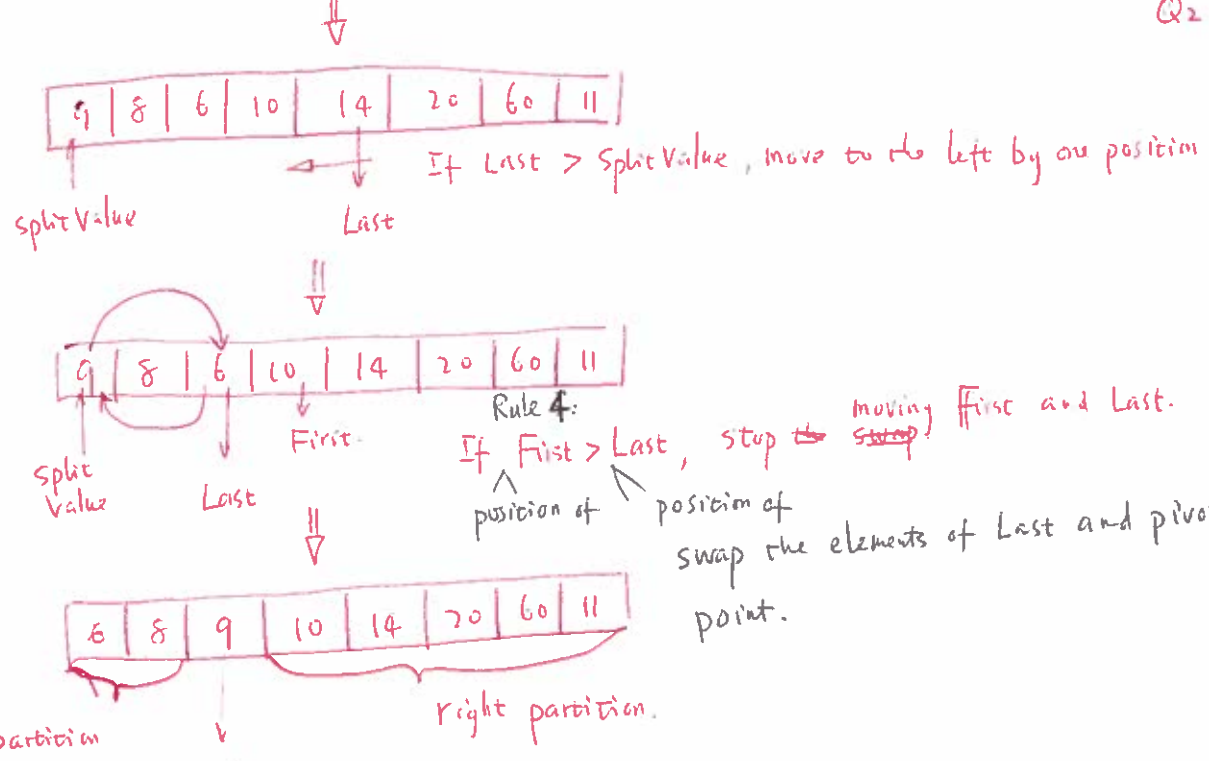 Q2
9 8 6 10 14 20 60 11
If Last > SplitValue, move to the left by one position
SplitValue
Last
9 8 6 10 14 20 60 11
Rule 4:
moving First and Last.
First
If First > Last, stop the swap.
Split
Value
Last
position of
position of
swap the elements of Last and pivo
point.
6 8 9 10 14 20 60 11
right partition.
partition